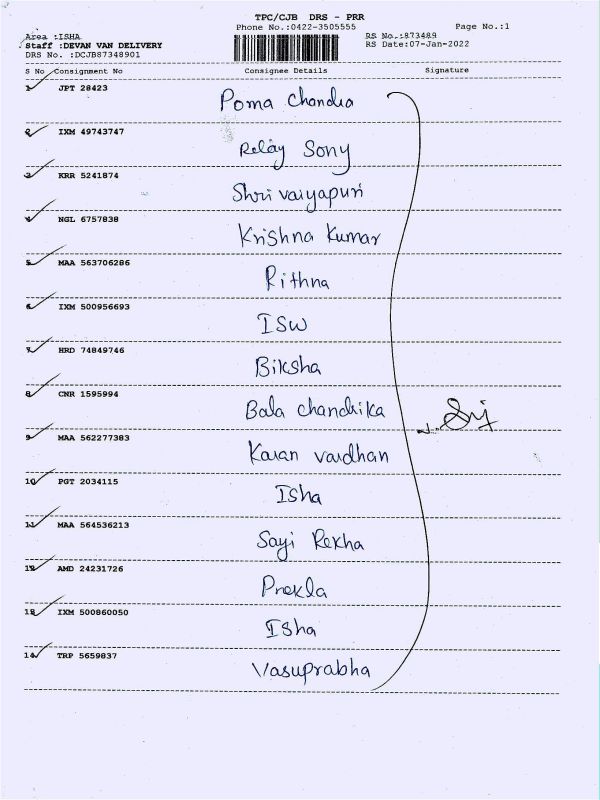 TPC/CJB DRS - PRR
Phone No.:0422-3505555
Page No.:1
Area :ISHA
Staff :DEVAN VAN DELIVERY
DRS No. :DCJB87348901
RS No.:873489
RS Date:07-Jan-2022
S No Consignment No Consignee Details Signature
1 JPT 28423
Poma Chandra
2 IXM 49743747
Relay Sony
3 KRR 5241874
Shri vaiyapuri
4 NGL 6757838
Krishna Kumar
5 MAA 563706286
Rithna
6 IXM 500956693
ISW
7 HRD 74849746
Biksha
8 CNR 1595994
Bala chandrika
9 MAA 562277383
Karan vardhan
10 PGT 2034115
Isha
11 MAA 564536213
Sayi Rekha
12 AMD 24231726
Prekla
13 IXM 500860050
Isha
14 TRP 5659837
Vasuprabha